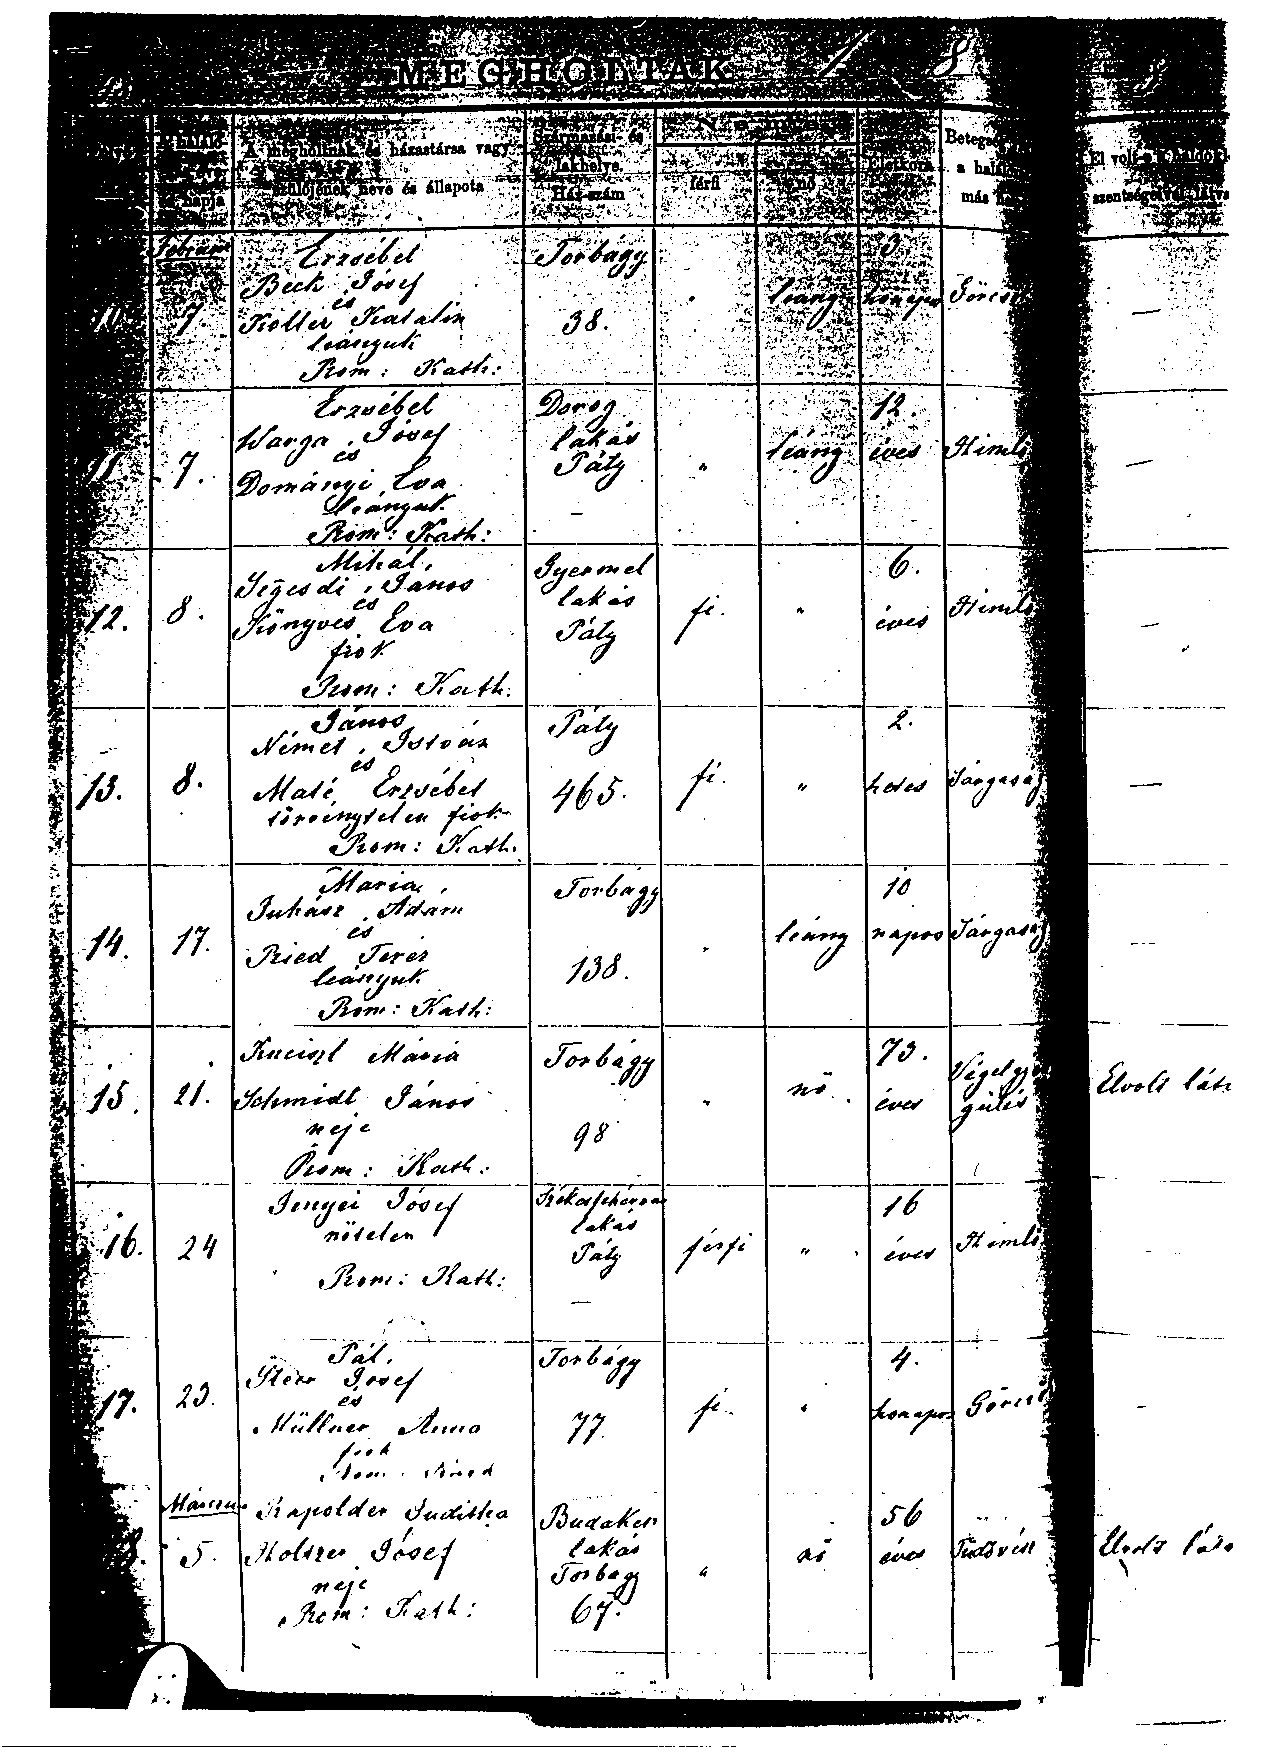 MEGHOLTAK 18
A megholtnak és házastársa vagy szülőjének neve és állapota
Származási és lakhelye Ház-szám
férfi
nő
Életkora
Beteges
a halál
más
El volt-e a haldokló
szentségekkel látva
Február
Erzsébet
Beck József
és
Koller Katalin
leányuk
Rom: Kath:
10. 7.
Torbágy
38.
"
leány
3
hónapos
Görcs
—
Erzsébet
Warga József
és
Dományi Éva
leányuk
Rom: Kath:
11. 7.
Dorog
lakás
Páty
—
"
leány
12.
éves
Himlő
—
Mihál
Segesdi János
és
Könyves Éva
fiok
Rom: Kath:
12. 8.
Gyermel
lakás
Páty
fi.
"
6.
éves
Himlő
—
János
Német István
és
Maté Erzsébet
törvénytelen fiok
Rom: Kath.
13. 8.
Páty
465.
fi.
"
2.
hetes
Sárgaság
—
Maria
Juhász Adam
és
Ried Teréz
leányuk
Rom: Kath:
14. 17.
Torbágy
138.
"
leány
10
napos
Sárgaság
—
Mária
Schmidt János
neje
Rom: Kath:
15. 21.
Torbágy
98
"
nő
73.
éves
Végelgyen
gülés
Elvolt lát
Jenyei József
nőtelen
Rom: Kath:
16. 24
Székesfehérvár
lakás
Páty
—
férfi
"
16
éves
Himlő
Pál
József
és
Müllner Anna
fiok
17. 23.
Torbágy
77.
fi.
"
4.
honapos
Görcs
—
Március
Rapolder Juditha
Holszer József
neje
Rom: Kath:
18. 5.
Budakesz
lakás
Torbágy
67.
"
nő
56
éves
Tüdővész
Elvolt lát